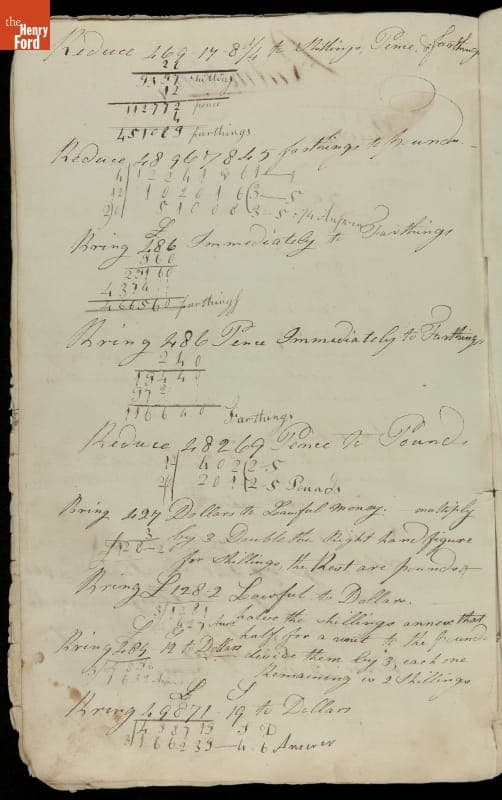 the
Henry
Ford
Reduce 469 17 8 3/4 to Shillings, Pence, & farthings
9397 shillings
12
112772 pence
4
451089 farthings
Reduce 48967845 farthings to Pounds
4
12
20
Bring £486 Immediately to Farthings
960
29160
4374
466560 farthings
Bring 486 Pence Immediately to Farthings
240
19440
972
116640 Farthings
Reduce 48269 Pence to Pounds
12 4022-5
20 201-2-5 Pounds
Bring 427 Dollars to Lawful Money. multiply
3
128-2 by 3 Double the Right hand figure
for Shillings, the Rest are pounds
Bring £128-2 Lawful to Dollars.
3 1281 halve the shillings annex that
427 half for a unit to the pounds
Bring 12 to Dollars divide them by 3, each one
Remaining is 2 Shillings
£ S
Bring 49871-19 to Dollars
S D
3 166239-4-6 Answer